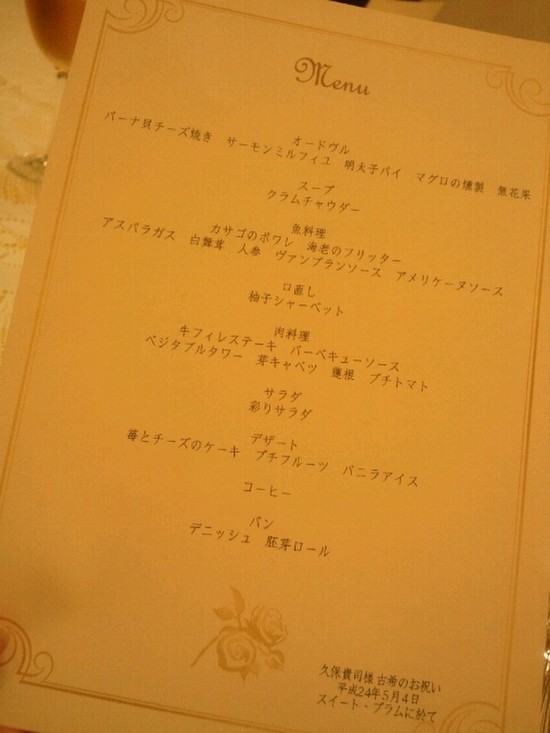 Menu
オードヴル
パーナ貝チーズ焼き　サーモンミルフィユ　明太子パイ　マグロの燻製　無花果
スープ
クラムチャウダー
魚料理
カサゴのポワレ　海老のフリッター
アスパラガス　白舞茸　人参　ヴァンブランソース　アメリケーヌソース
口直し
柚子シャーベット
肉料理
牛フィレステーキ　バーベキューソース
ベジタブルタワー　芽キャベツ　蓮根　プチトマト
サラダ
彩りサラダ
デザート
苺とチーズのケーキ　プチフルーツ　バニラアイス
コーヒー
パン
デニッシュ　胚芽ロール
久保貴司様 古希のお祝い
平成24年5月4日
スイート・プラムに於て